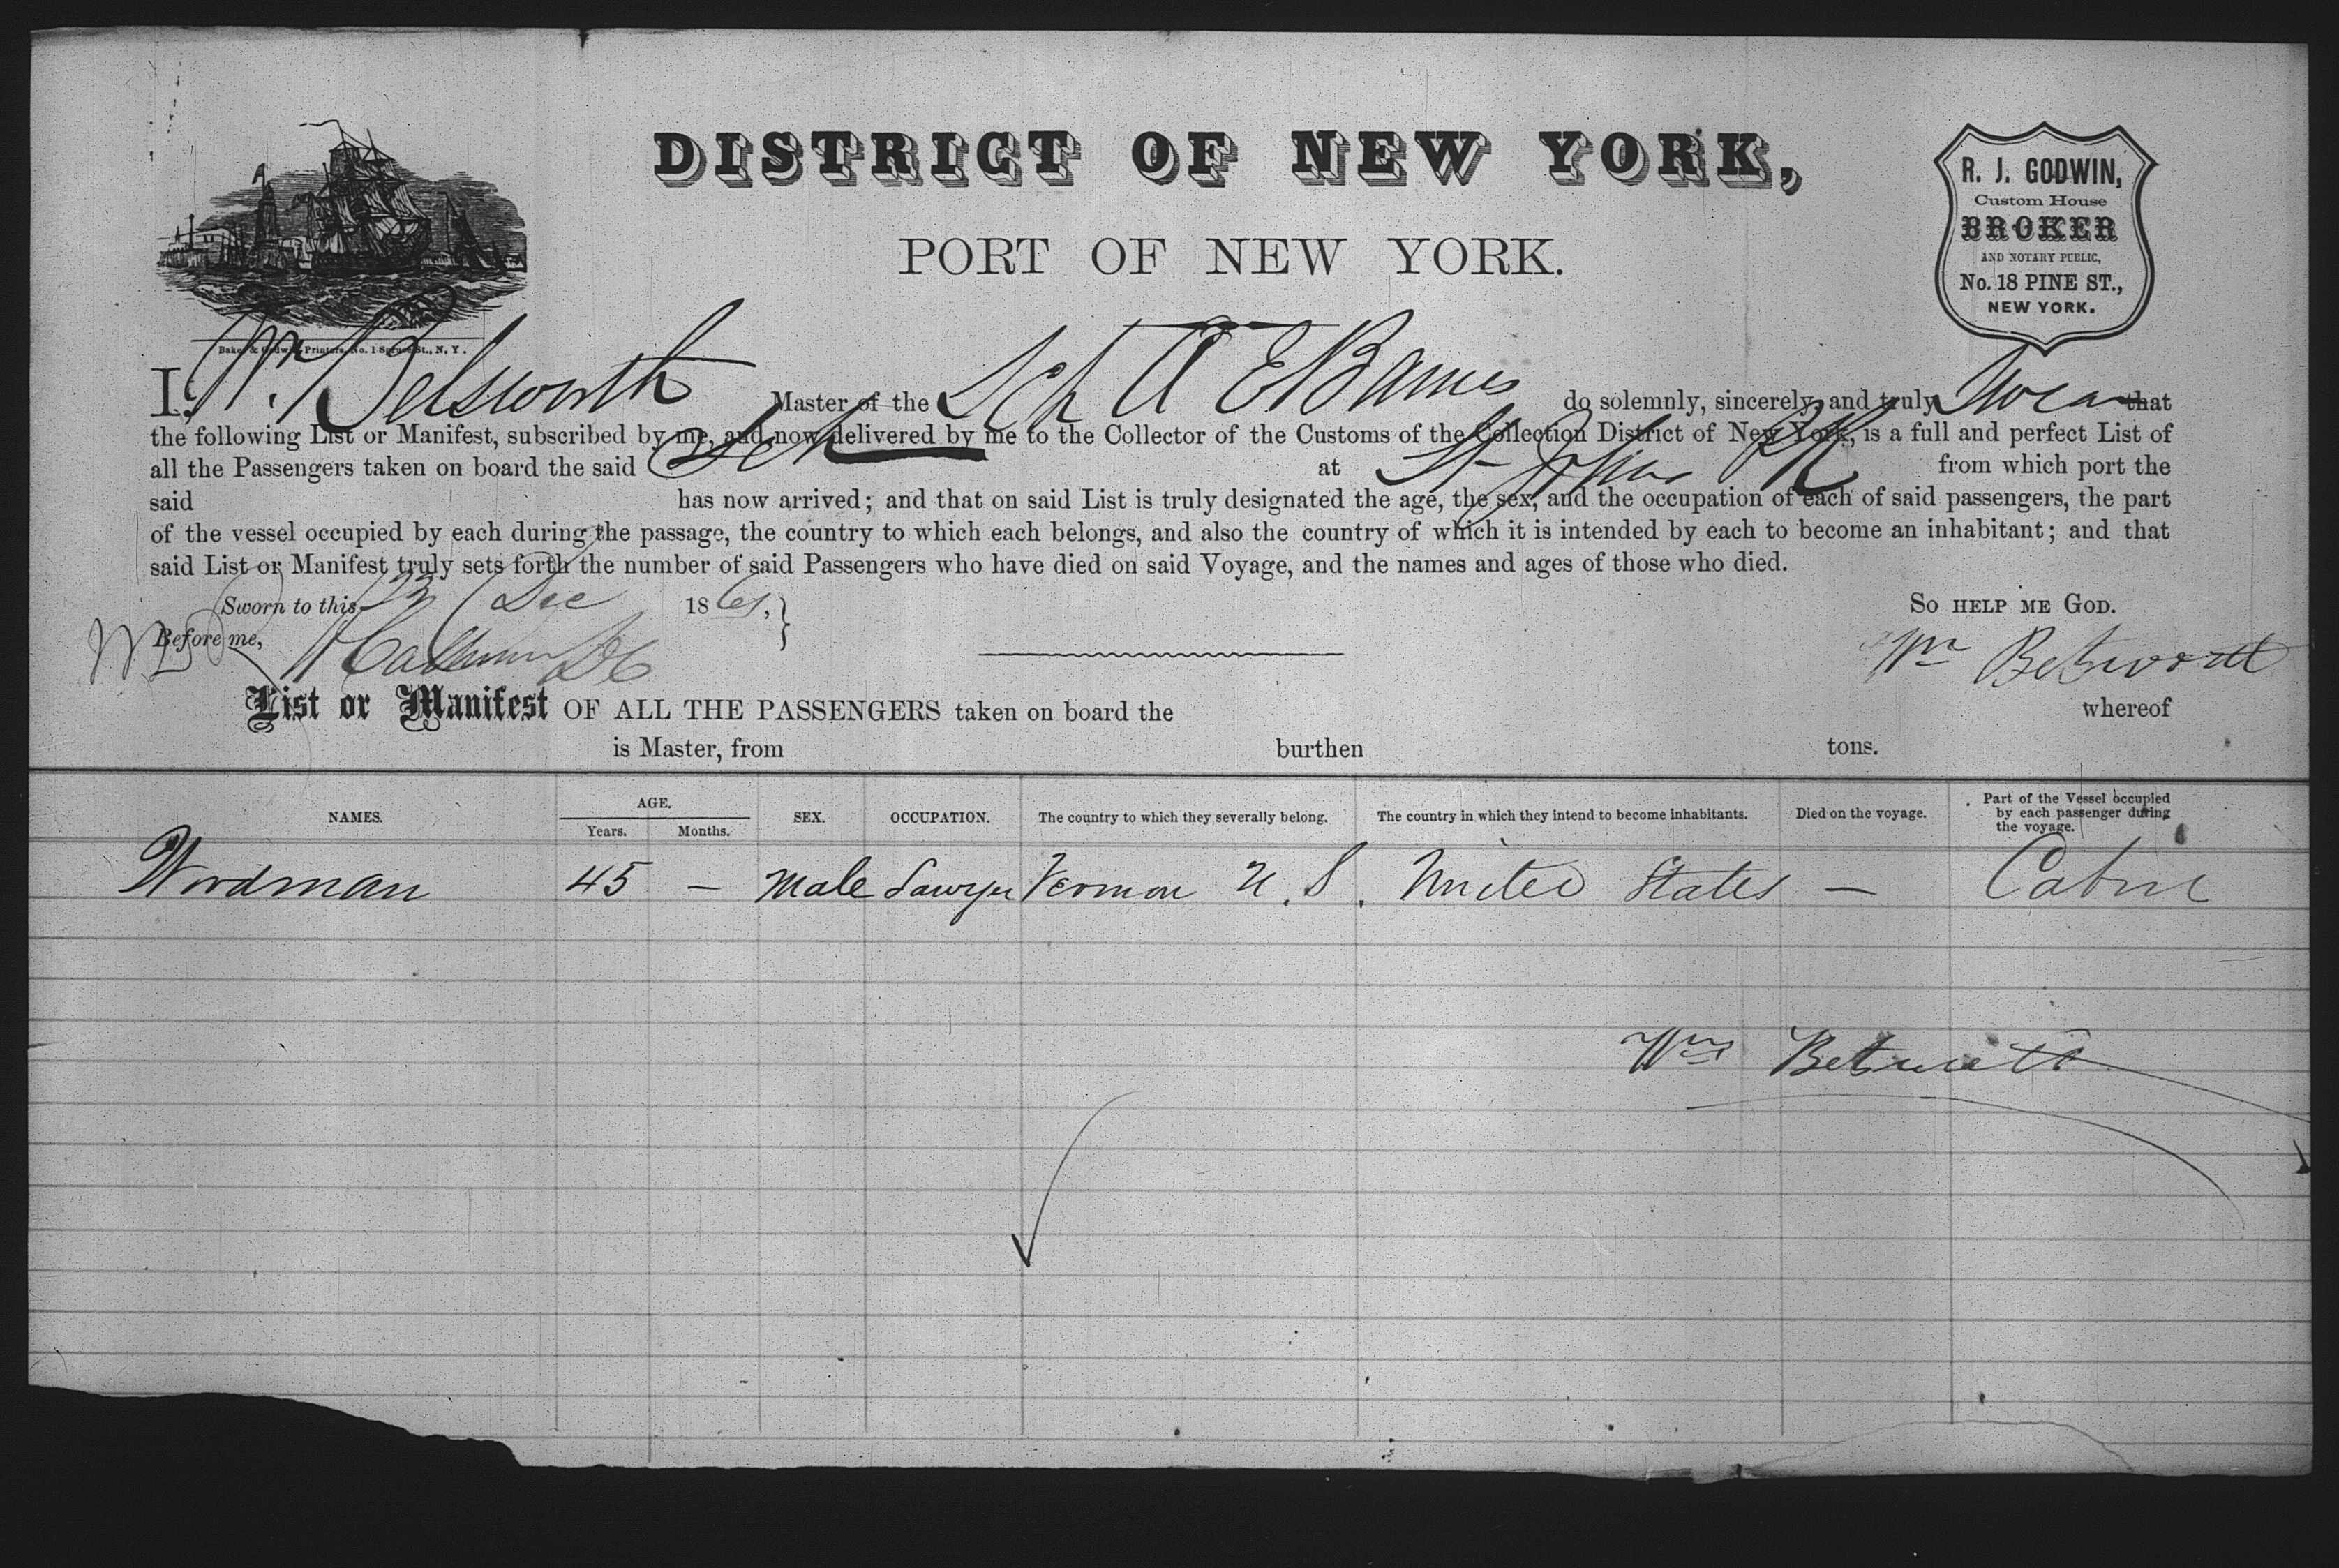 DISTRICT OF NEW YORK,
PORT OF NEW YORK.
R. J. GODWIN,
Custom House
BROKER
AND NOTARY PUBLIC,
No. 18 PINE ST.,
NEW YORK.
Baker & Godwin, Printers, No. 1 Spruce St., N. Y.
I, Wm Betsworth Master of the Sch A E Barnes do solemnly, sincerely and truly Swear that
the following List or Manifest, subscribed by me, and now delivered by me to the Collector of the Customs of the Collection District of New York, is a full and perfect List of
all the Passengers taken on board the said Sch at St Johns PR from which port the
said has now arrived; and that on said List is truly designated the age, the sex, and the occupation of each of said passengers, the part
of the vessel occupied by each during the passage, the country to which each belongs, and also the country of which it is intended by each to become an inhabitant; and that
said List or Manifest truly sets forth the number of said Passengers who have died on said Voyage, and the names and ages of those who died.
Sworn to this 23 Dec 186 So HELP ME GOD.
Before me, Calhoun DC Wm Betsworth
List or Manifest OF ALL THE PASSENGERS taken on board the whereof
is Master, from burthen tons.
NAMES. AGE. Years. Months. SEX. OCCUPATION. The country to which they severally belong. The country in which they intend to become inhabitants. Died on the voyage. Part of the Vessel occupied by each passenger during the voyage.
Wordman 45 — Male Sawyer Vermon U.S. United States — Cabin
Wm